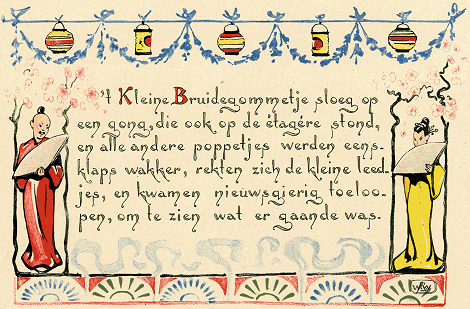 't Kleine Bruidegommetje sloeg op
een gong, die ook op de étagère stond,
en alle andere poppetjes werden eens-
klaps wakker, rekten zich de kleine leed-
jes, en kwamen nieuwsgierig toeloo-
pen, om te zien wat er gaande was.